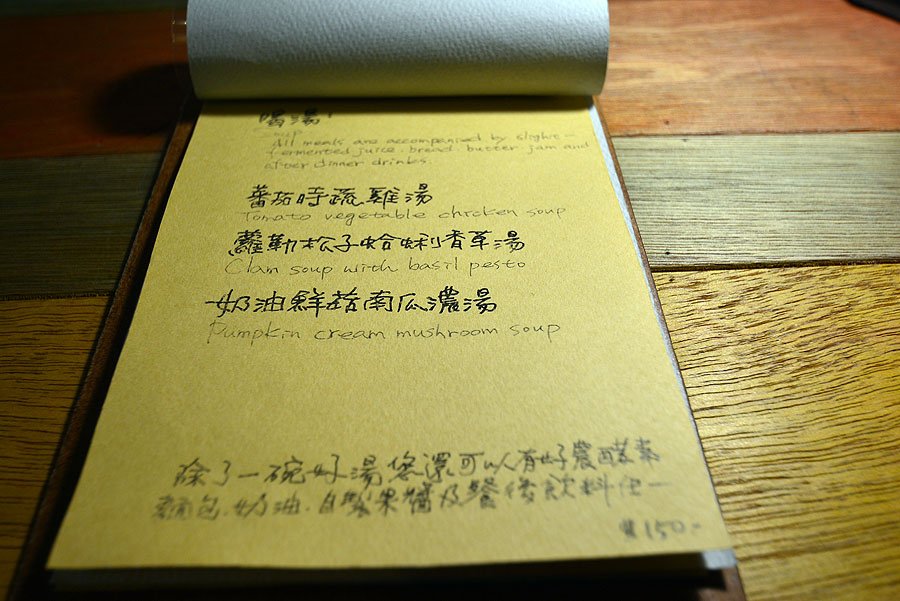 喝湯
Soup
All meals are accompanied by slight-
fermented juice. bread. butter. jam and
after dinner drinks.
蕃茄時蔬雞湯
Tomato vegetable chicken soup
蘿勒松子蛤蜊香草湯
Clam soup with basil pesto
奶油鮮菇南瓜濃湯
Pumpkin cream mushroom soup
除了一碗好湯您還可以有好農酵素
麵包.奶油.自製果醬及餐後飲料任一
$150-